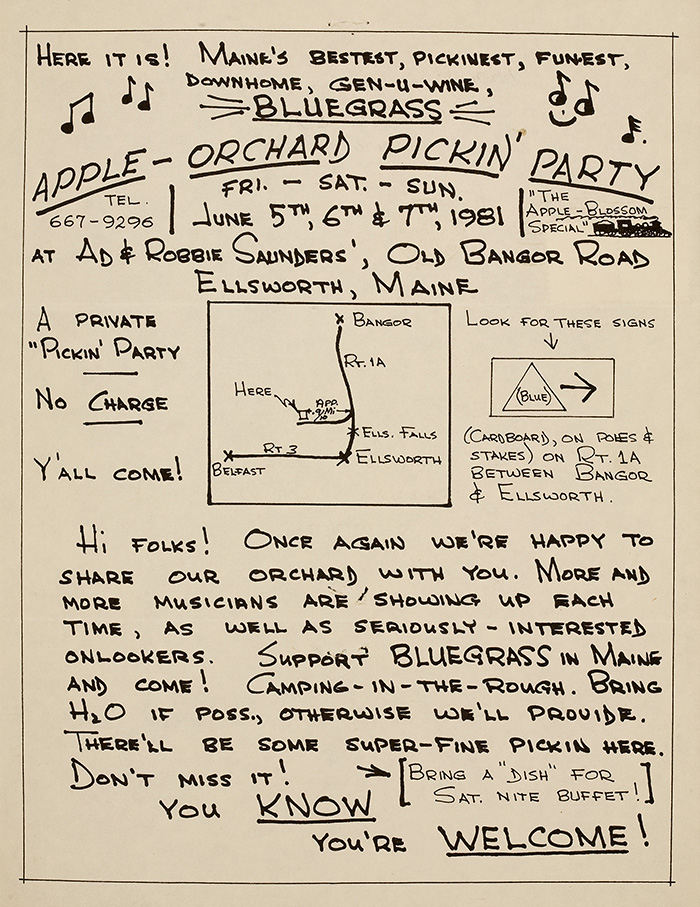 HERE IT IS! MAINE'S BESTEST, PICKINEST, FUN-EST,
DOWNHOME, GEN-U-WINE,
BLUEGRASS
APPLE-ORCHARD PICKIN' PARTY
TEL.
667-9296
FRI. - SAT. - SUN.
JUNE 5TH, 6TH & 7TH, 1981
"THE
APPLE-BLOSSOM
SPECIAL"
AT AD & ROBBIE SAUNDERS', OLD BANGOR ROAD
ELLSWORTH, MAINE
A PRIVATE
"PICKIN' PARTY
NO CHARGE
Y'ALL COME!
BANGOR
RT. 1A
HERE
APP.
MI
ELLS. FALLS
RT 3
ELLSWORTH
BELFAST
LOOK FOR THESE SIGNS
(BLUE)
(CARDBOARD), ON POLES &
STAKES) ON RT. 1A
BETWEEN BANGOR
& ELLSWORTH.
HI FOLKS! ONCE AGAIN WE'RE HAPPY TO
SHARE OUR ORCHARD WITH YOU. MORE AND
MORE MUSICIANS ARE SHOWING UP EACH
TIME, AS WELL AS SERIOUSLY-INTERESTED
ONLOOKERS. SUPPORT BLUEGRASS IN MAINE
AND COME! CAMPING-IN-THE-ROUGH. BRING
H2O IF POSS., OTHERWISE WE'LL PROVIDE.
THERE'LL BE SOME SUPER-FINE PICKIN HERE.
DON'T MISS IT!
[BRING A "DISH" FOR
SAT. NITE BUFFET!]
YOU KNOW
YOU'RE WELCOME!